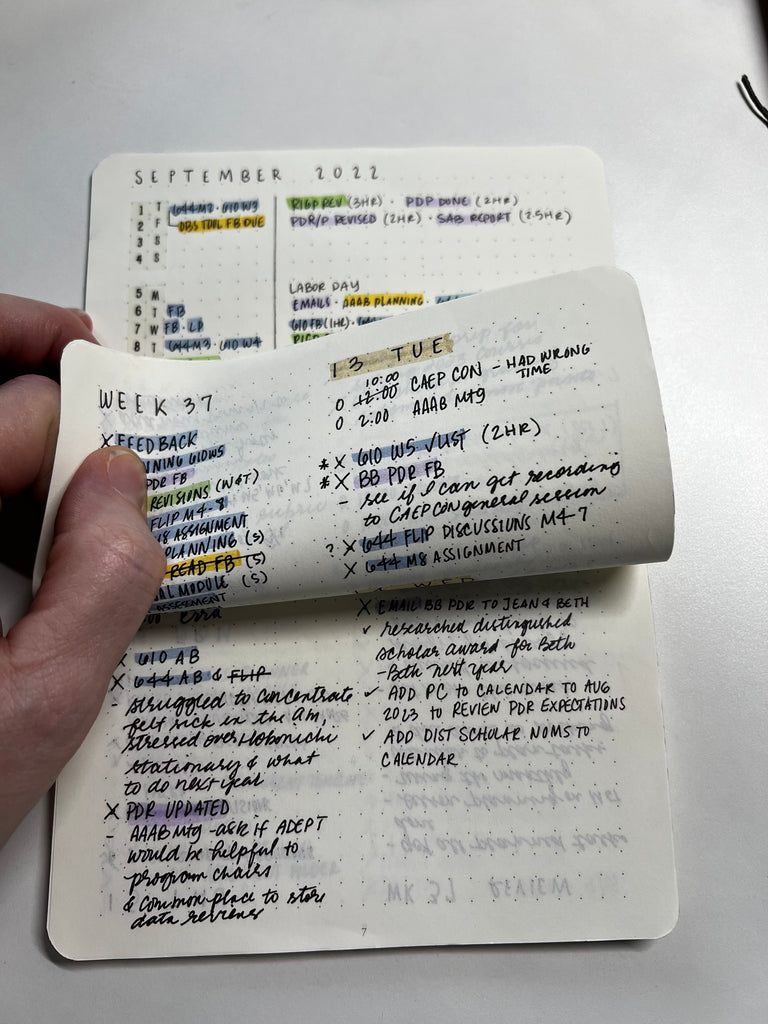 SEPTEMBER 2022
1 T 644 M2 · 610 W3
2 F OBS TOOL FB DUE
3 S
4 S
5 M
6 T FB
7 W FB · LP
8 T 644 M3 · 610 W4
(3HR) · PDP DONE (2HR)
PDR/P REVISED (2HR) · SAB REPORT (2.5HR)
LABOR DAY
EMAILS · AAAB PLANNING ·
610 FB (1HR) ·
WEEK 37
X FEEDBACK
NNING 610W5
PDR FB
REVISIONS (W&T)
FLIP M4-8
18 ASSIGNMENT
PLANNING (S)
READ FB (S)
AL MODULE (S)
ASSESSMENT
13 TUE
10:00
O 12:00 CAEP CON - HAD WRONG
TIME
O 2:00 AAAB Mtg
* X 610 W5 √LIST (2HR)
* X BB PDR FB
- see if I can get recording
to CAEP CON general session
? X 644 FLIP DISCUSSIONS M4-7
X 644 M8 ASSIGNMENT
X 610 AB
X 644 AB & FLIP
- struggled to concentrate
felt sick in the am,
stressed over Hobonichi
stationary & what
to do next year
X PDR UPDATED
- AAAB Mtg - ask if ADEPT
would be helpful to
program chairs
& common place to store
data reviews
WED
X EMAIL BB PDR TO JEAN & BETH
✓ researched distinguished
scholar award for Beth
- Beth next year
✓ ADD PC TO CALENDAR TO AUG
2023 TO REVIEW PDR EXPECTATIONS
✓ ADD DIST SCHOLAR NOMS TO
CALENDAR
7